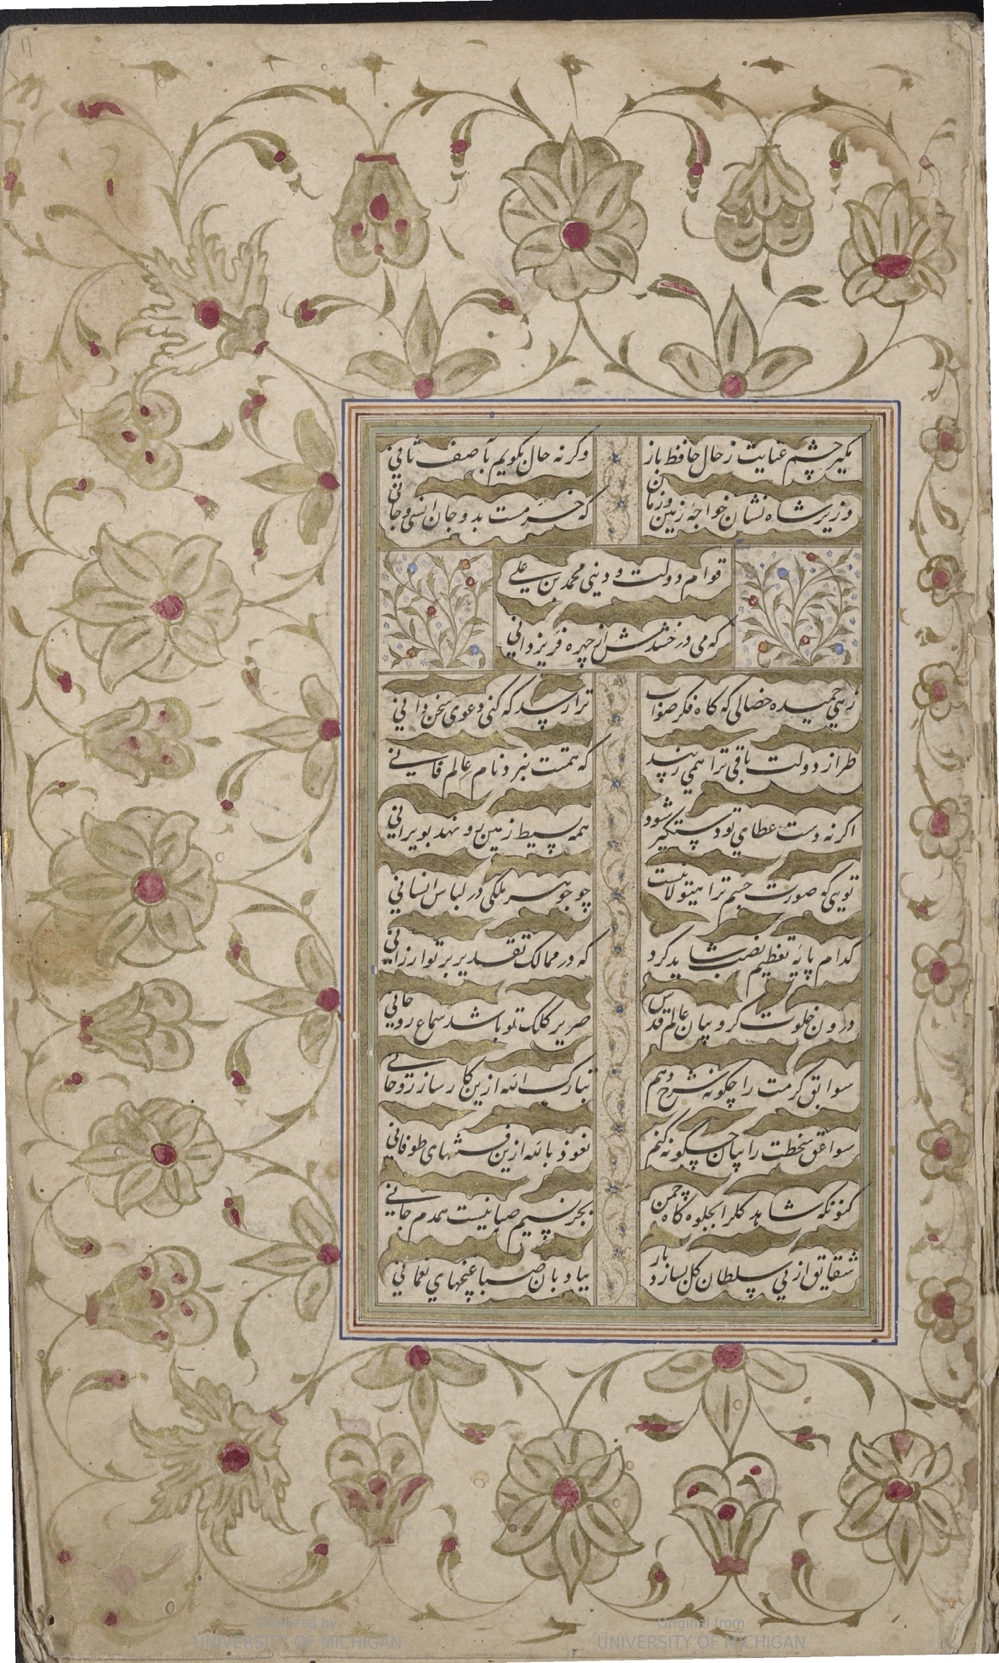 مگیر چشم عنایت ز حال حافظ باز
وگرنه حال بگویم بآصف ثانی
وزیر شاه نشان خواجهٔ زمین و زمان
که خرمست بدو جان انسی و جانی
قوام دولت و دینی محمد بن علی
که می درخشدش از چهره فر یزدانی
زهی حمیده خصالی که گاه فکر صواب
ترا رسد که کنی دعوی سخن دانی
طراز دولت باقی ترا همی زیبد
که همتت نبرد نام عالم فانی
اگر نه دست عطای تو دستگیر شود
همه بسیط زمین رو نهد بویرانی
تویی که صورت جسم ترا هیولا نیست
چو جوهر ملکی در لباس انسانی
کدام پایهٔ تعظیم نصب شاید کرد
که در ممالک تقدیر برتر ارزانی
درون خلوت کروبیان عالم قدس
صریر کلک تو باشد سماع روحانی
سوابق کرمت را چگونه شرح دهم
تبارک الله ازین کارساز روحانی
سواعق سخطت را بیان چگونه کنم
نعوذ بالله ازین فتنهای طوفانی
کنونکه شاهد گلرا بجلوه گاه چمن
بجز نسیم صبا نیست همدم جانی
شقایق از پی سلطان گل بسازد باز
ببادبان صبا غنچهای نعمانی
Digitized by
UNIVERSITY OF MICHIGAN
Original from
UNIVERSITY OF MICHIGAN